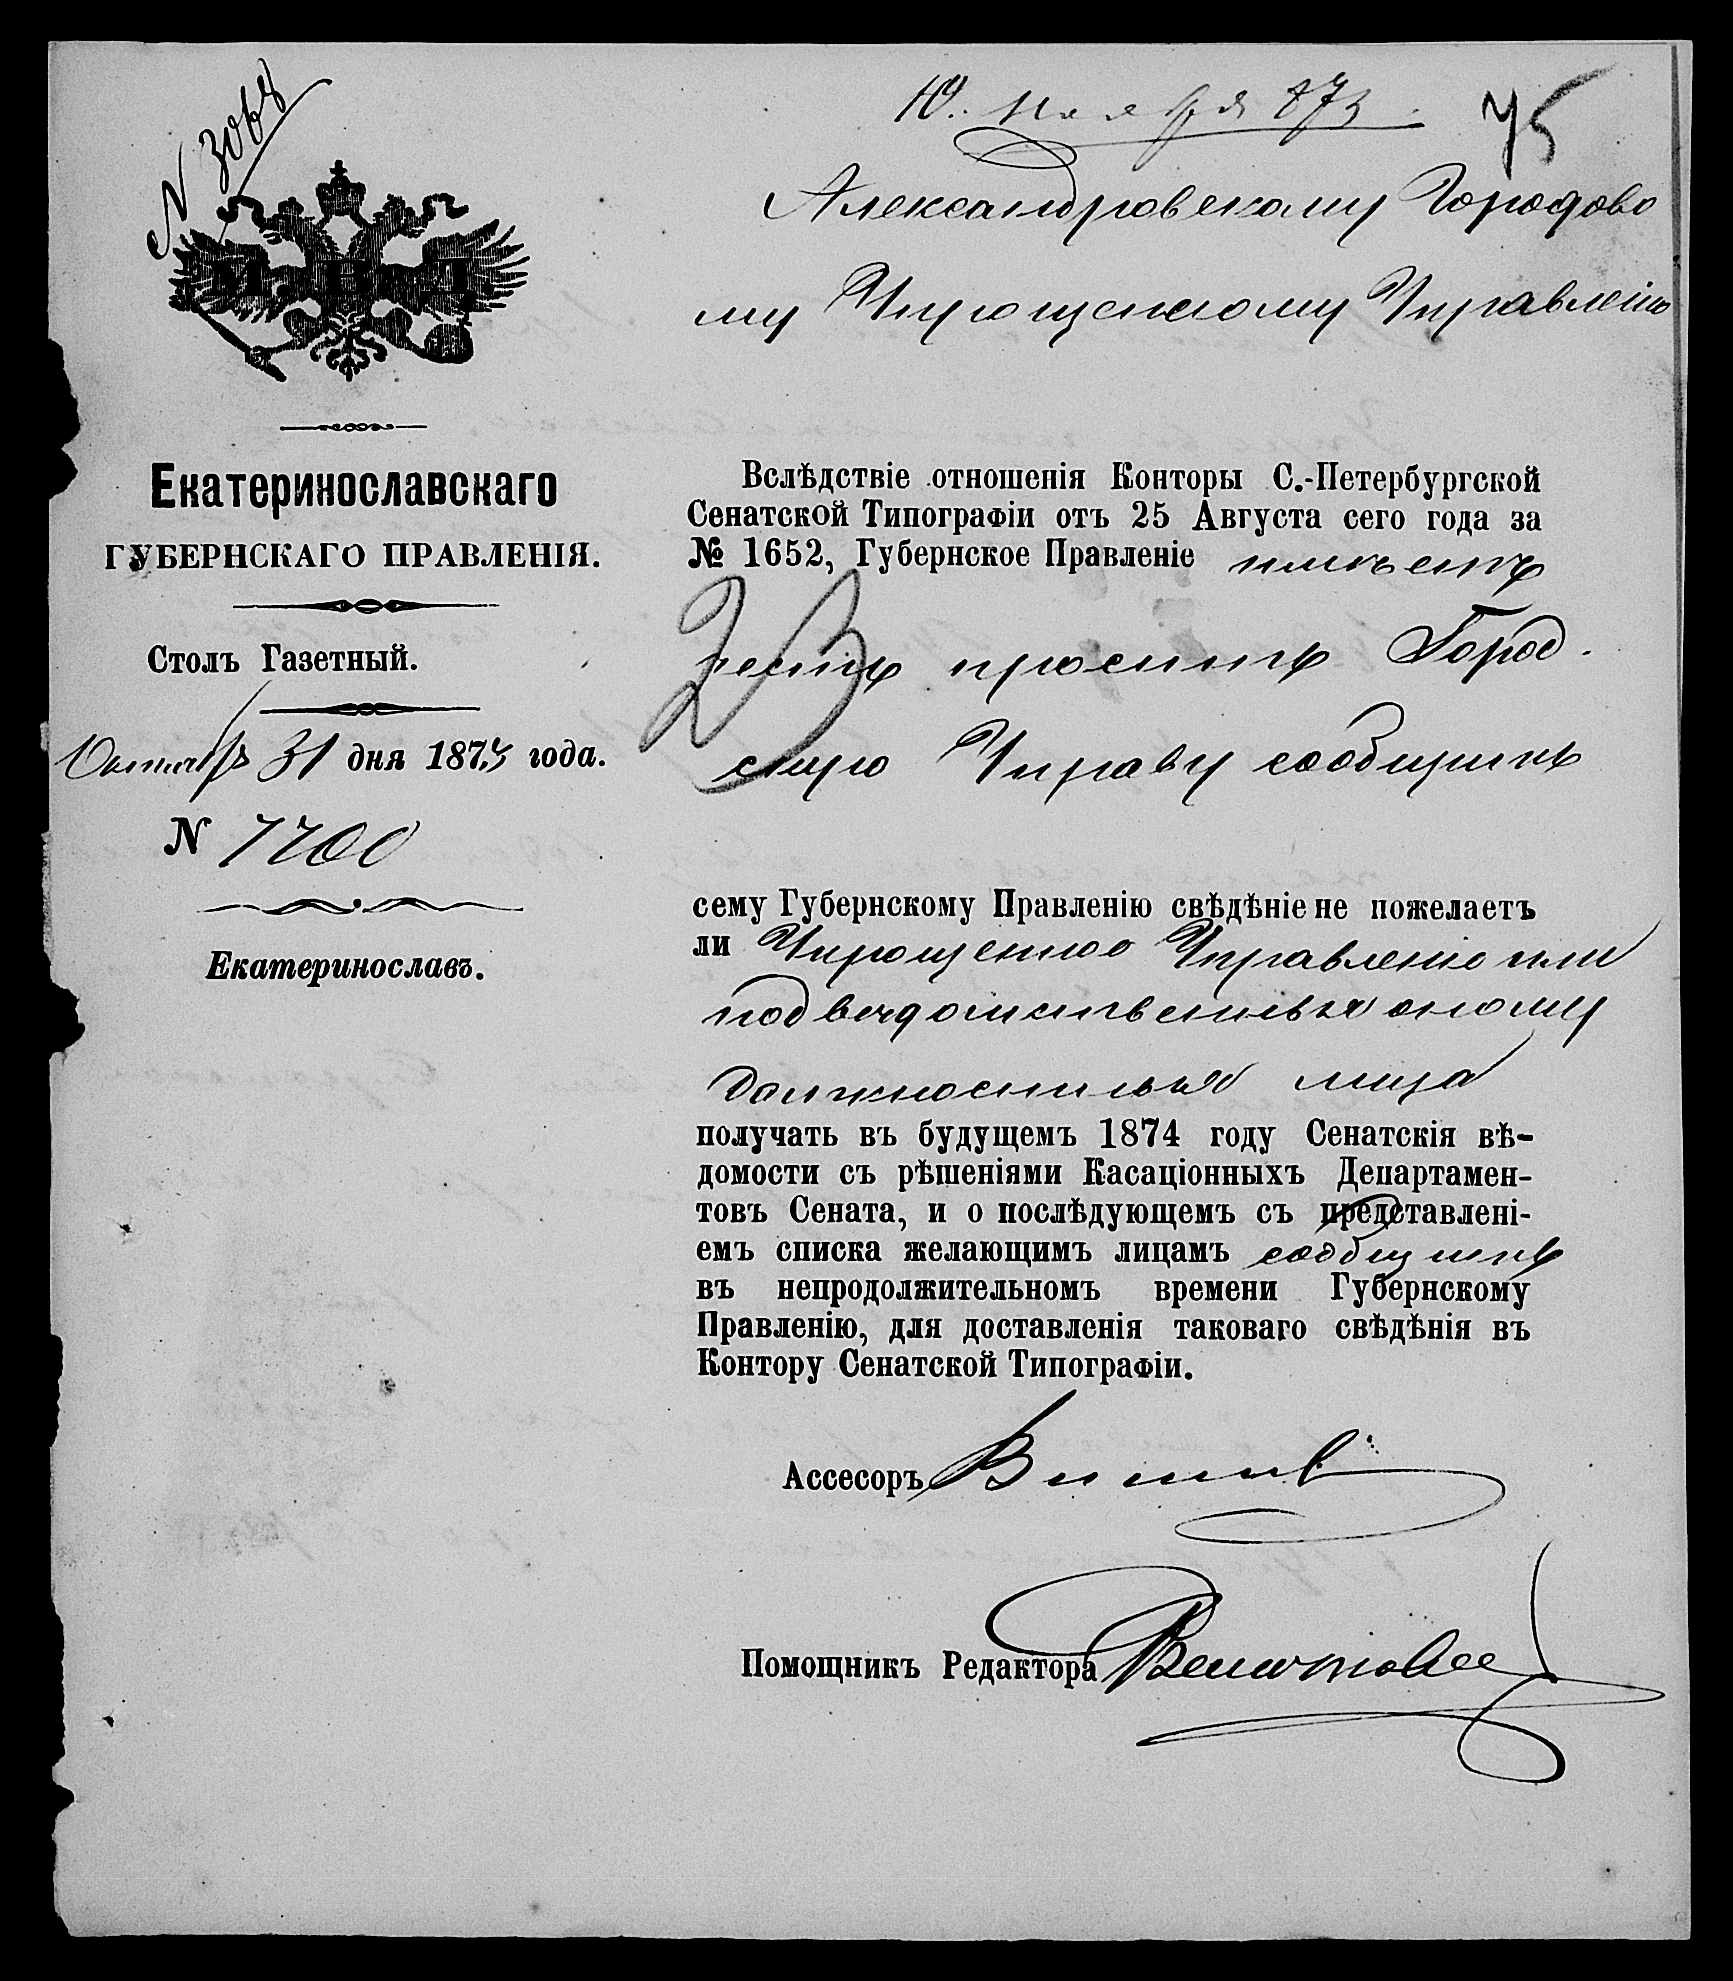 N 3068
10. Ноября 873.
75
Александровскому Городово
му Упрощенному Управлению
М.В.Д.
Екатеринославскаго
ГУБЕРНСКАГО ПРАВЛЕНІЯ.
Столъ Газетный.
Октября 31 дня 1873 года.
N 7700
Екатеринославъ.
Вслѣдствіе отношенія Конторы С.-Петербургской
Сенатской Типографіи отъ 25 Августа сего года за
№ 1652, Губернское Правленіе имѣетъ
честь проситъ Город.
скую Управу сообщить
23
сему Губернскому Правленію свѣдѣніе не пожелаетъ
ли Упрощенное Управленіе или
подвѣдомственныя оному
должностныя лица
получать въ будущемъ 1874 году Сенатскія вѣ-
домости съ рѣшеніями Касаціонныхъ Департамен-
товъ Сената, и о послѣдующемъ съ представлені-
емъ списка желающимъ лицамъ сообщить
въ непродолжительномъ времени Губернскому
Правленію, для доставленія таковаго свѣдѣнія въ
Контору Сенатской Типографіи.
Ассесоръ
Помощникъ Редактора